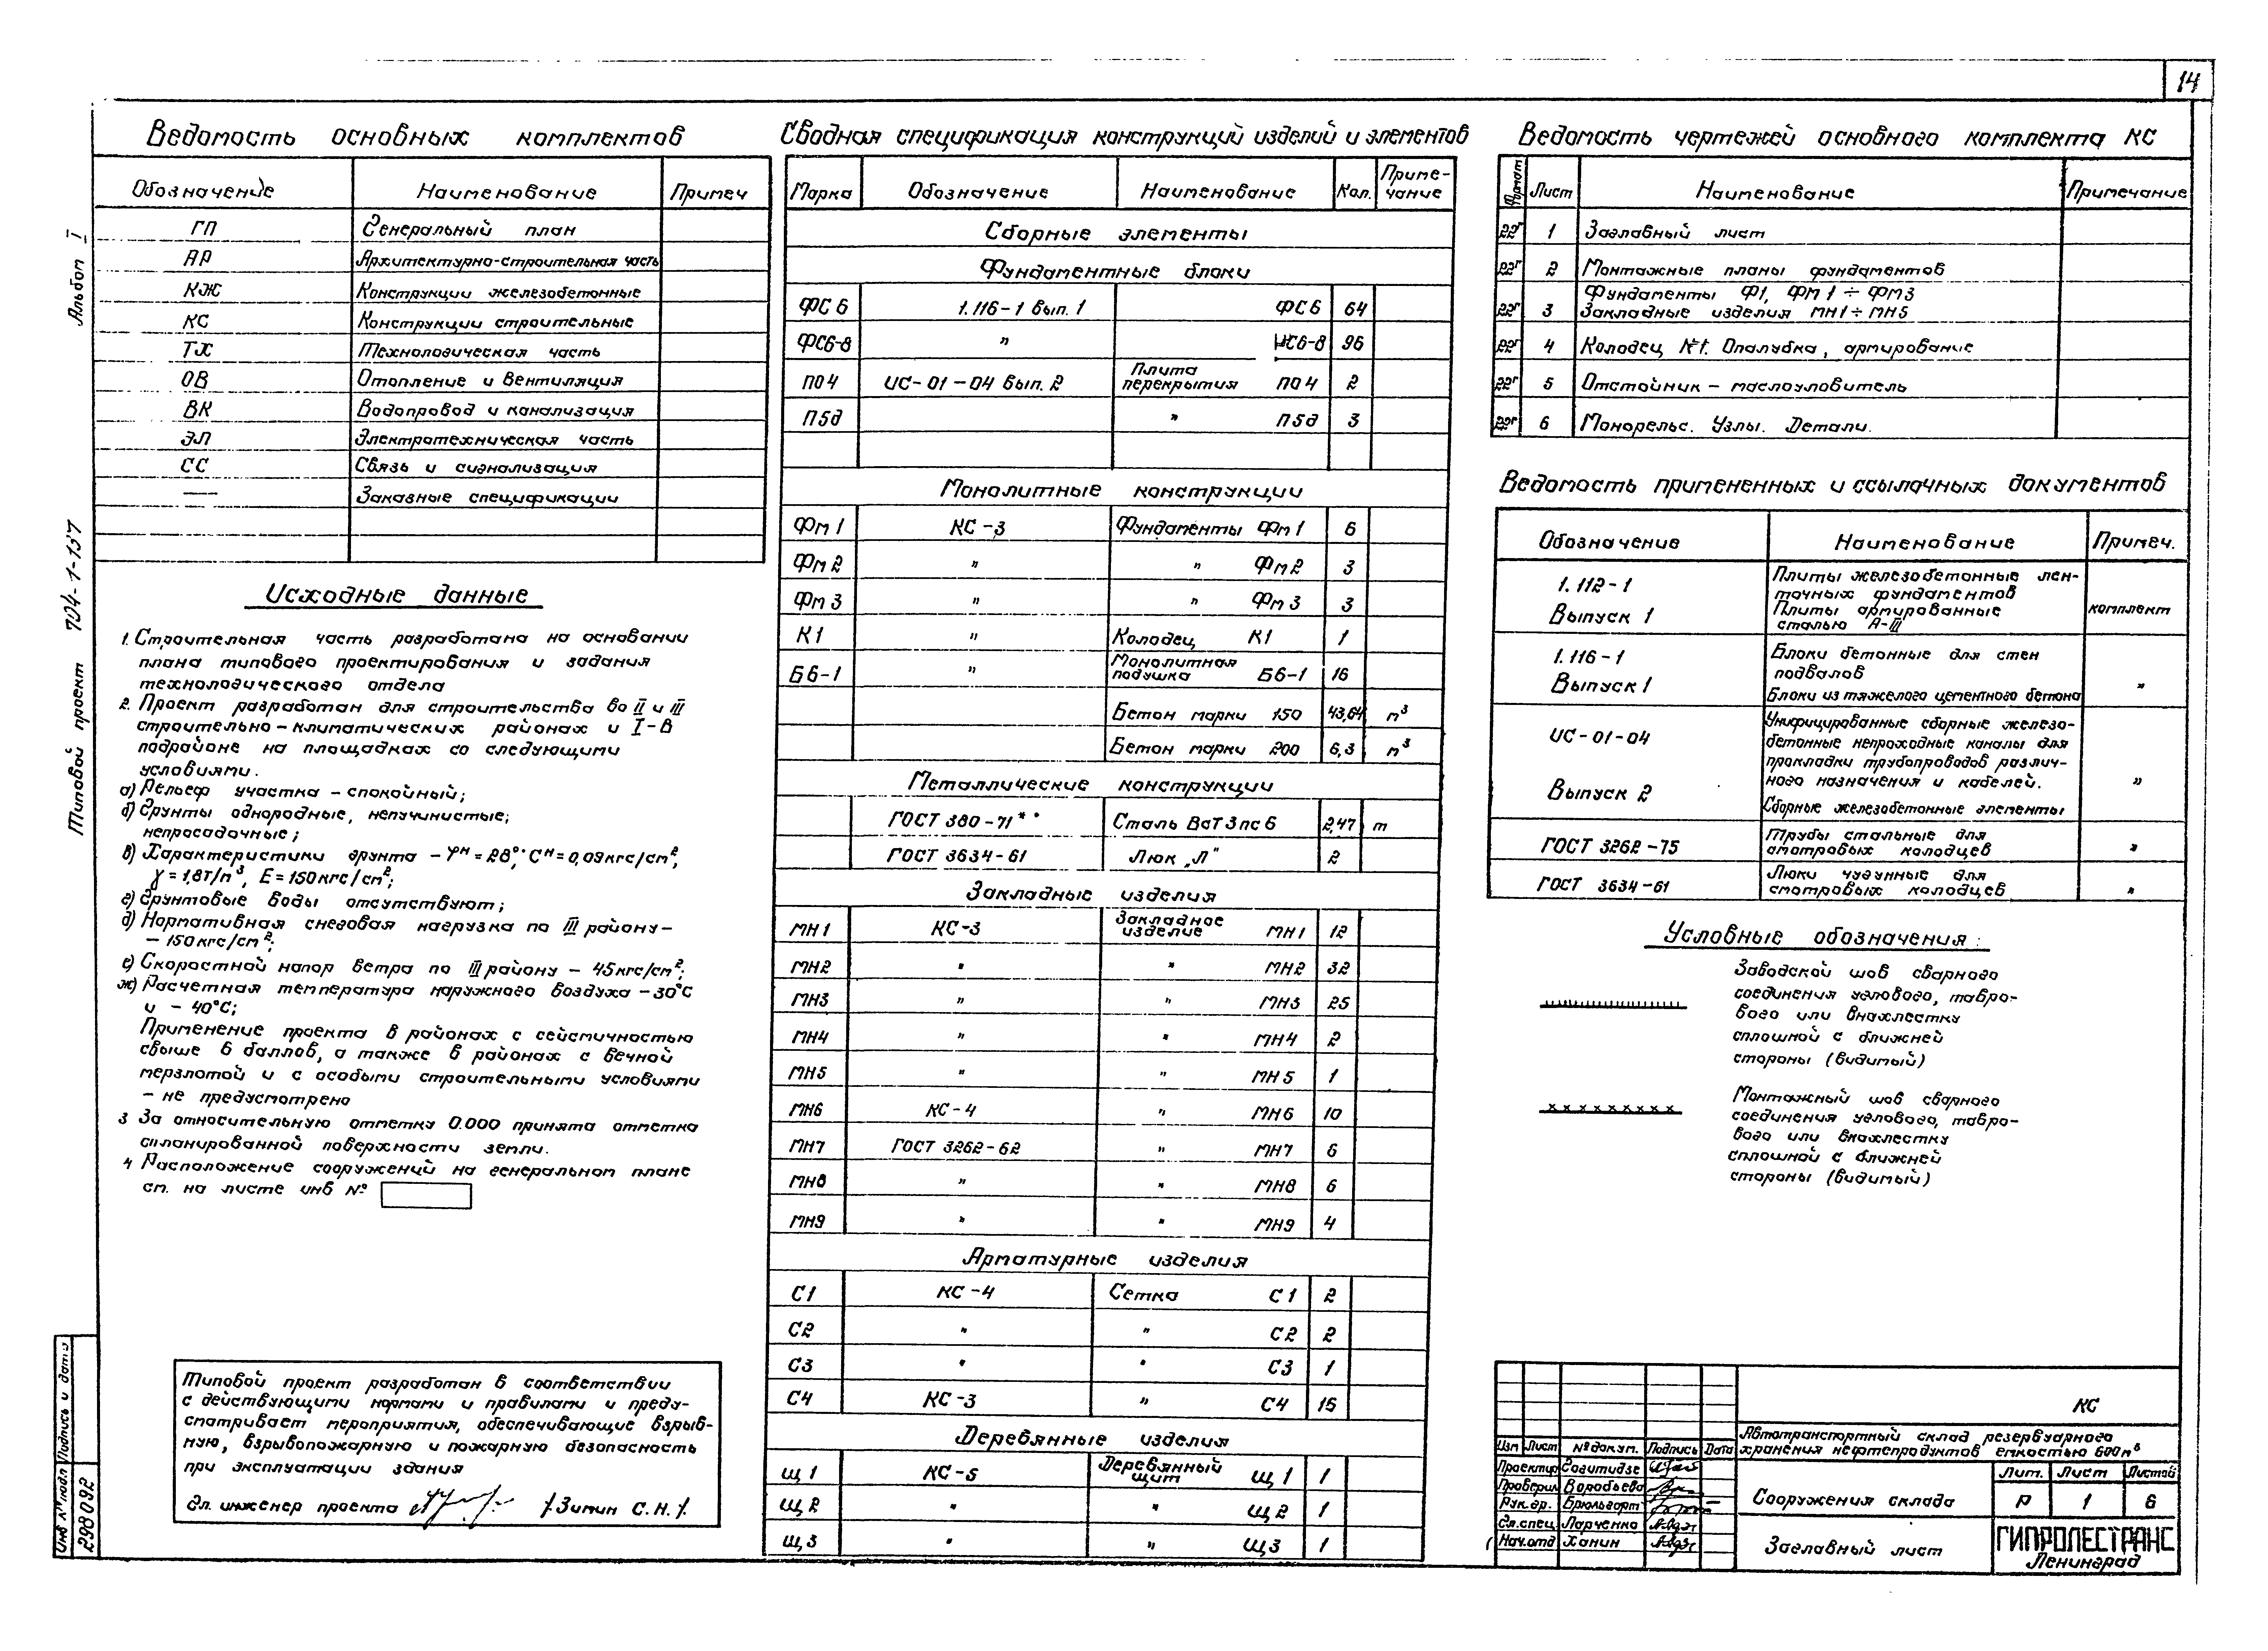 14
Альбом I
Типовой проект 704-1-157
Инв № подл
Подпись и дата
298092
Ведомость основных комплектов
Обозначение Наименование Примеч
ГП Генеральный план
АР Архитектурно-строительная часть
КЖ Конструкции железобетонные
КС Конструкции строительные
ТХ Технологическая часть
ОВ Отопление и вентиляция
ВК Водопровод и канализация
ЭЛ Электротехническая часть
СС Связь и сигнализация
— Заказные спецификации
Исходные данные
1. Строительная часть разработана на основании
плана типового проектирования и задания
технологического отдела
2. Проект разработан для строительства во II и III
строительно-климатических районах и I-В
подрайоне на площадках со следующими
условиями.
а) Рельеф участка - спокойный;
б) Грунты однородные, непучинистые;
непросадочные;
в) Характеристики грунта - φᴴ=28°; Cᴴ=0,09кгс/см²,
γ=1,8т/м³, Е=150кгс/см²;
г) Грунтовые воды отсутствуют;
д) Нормативная снеговая нагрузка по III району -
- 150кгс/см²;
е) Скоростной напор ветра по III району - 45кгс/см²;
ж) Расчетная температура наружного воздуха -30°С
и - 40°С;
Применение проекта в районах с сейсмичностью
свыше 6 баллов, а также в районах с вечной
мерзлотой и с особыми строительными условиями
- не предусмотрено
3 За относительную отметку 0.000 принята отметка
спланированной поверхности земли.
4 Расположение сооружений на генеральном плане
см. на листе инв №
Типовой проект разработан в соответствии
с действующими нормами и правилами и преду-
сматривает мероприятия, обеспечивающие взрыв-
ную, взрывопожарную и пожарную безопасность
при эксплуатации здания
Гл. инженер проекта /Зимин С.Н./.
Сводная спецификация конструкций изделий и элементов
Марка Обозначение Наименование Кол. Приме-
чание
Сборные элементы
Фундаментные блоки
ФС6 1.116-1 вып. 1 ФС6 64
ФС6-8 " НС6-8 96
ПО4 ИС-01-04 вып. 2 Плита
перекрытия ПО4 2
П5д " П5д 3
Монолитные конструкции
Фм1 КС-3 Фундаменты Фм1 6
Фм2 " " Фм2 3
Фм3 " " Фм3 3
К1 " Колодец К1 1
Б6-1 " Монолитная
подушка Б6-1 16
Бетон марки 150 43,64 м³
Бетон марки 200 6,3 м³
Металлические конструкции
ГОСТ 380-71** Сталь ВсТ3пс6 2,47 т
ГОСТ 3634-61 Люк „Л" 2
Закладные изделия
МН1 КС-3 Закладное
изделие МН1 12
МН2 " " МН2 32
МН3 " " МН3 25
МН4 " " МН4 2
МН5 " " МН5 1
МН6 КС-4 " МН6 10
МН7 ГОСТ 3262-62 " МН7 6
МН8 " " МН8 6
МН9 " " МН9 4
Арматурные изделия
С1 КС-4 Сетка С1 2
С2 " " С2 2
С3 " " С3 1
С4 КС-3 " С4 15
Деревянные изделия
Щ1 КС-5 Деревянный
щит Щ1 1
Щ2 " " Щ2 1
Щ3 " " Щ3 1
Ведомость чертежей основного комплекта КС
Формат Лист Наименование Примечание
22г 1 Заглавный лист
22г 2 Монтажные планы фундаментов
22г 3 Фундаменты Ф1, ФМ1÷ФМ3
Закладные изделия МН1÷МН5
22г 4 Колодец №1. Опалубка, армирование
22г 5 Отстойник - маслоуловитель
22г 6 Монорельс. Узлы. Детали.
Ведомость примененных и ссылочных документов
Обозначение Наименование Примеч.
1.112-1
Выпуск 1
Плиты железобетонные лен-
точных фундаментов
Плиты армированные
сталью А-III
комплект
1.116-1
Выпуск 1
Блоки бетонные для стен
подвалов
Блоки из тяжелого цементного бетона
"
ИС-01-04
Выпуск 2
Унифицированные сборные железо-
бетонные непроходные каналы для
прокладки трубопроводов различ-
ного назначения и кабелей.
Сборные железобетонные элементы
"
ГОСТ 3262-75 Трубы стальные для
смотровых колодцев "
ГОСТ 3634-61 Люки чугунные для
смотровых колодцев "
Условные обозначения:
Заводской шов сварного
соединения углового, тавро-
вого или внахлестку
сплошной с ближней
стороны (видимый)
Монтажный шов сварного
соединения углового, тавро-
вого или внахлестку
сплошной с ближней
стороны (видимый)
КС
Автотранспортный склад резервуарного
хранения нефтепродуктов емкостью 600м³
Изм Лист № докум. Подпись Дата
Проектир Согитидзе
Проверил Воробьева
Рук.гр. Брюльгорт
Гл.спец. Ларченко
Нач.отд Ханин
Сооружения склада
Лит. Лист Листов
Р 1 6
Заглавный лист
ГИПРОЛЕСТРАНС
Ленинград